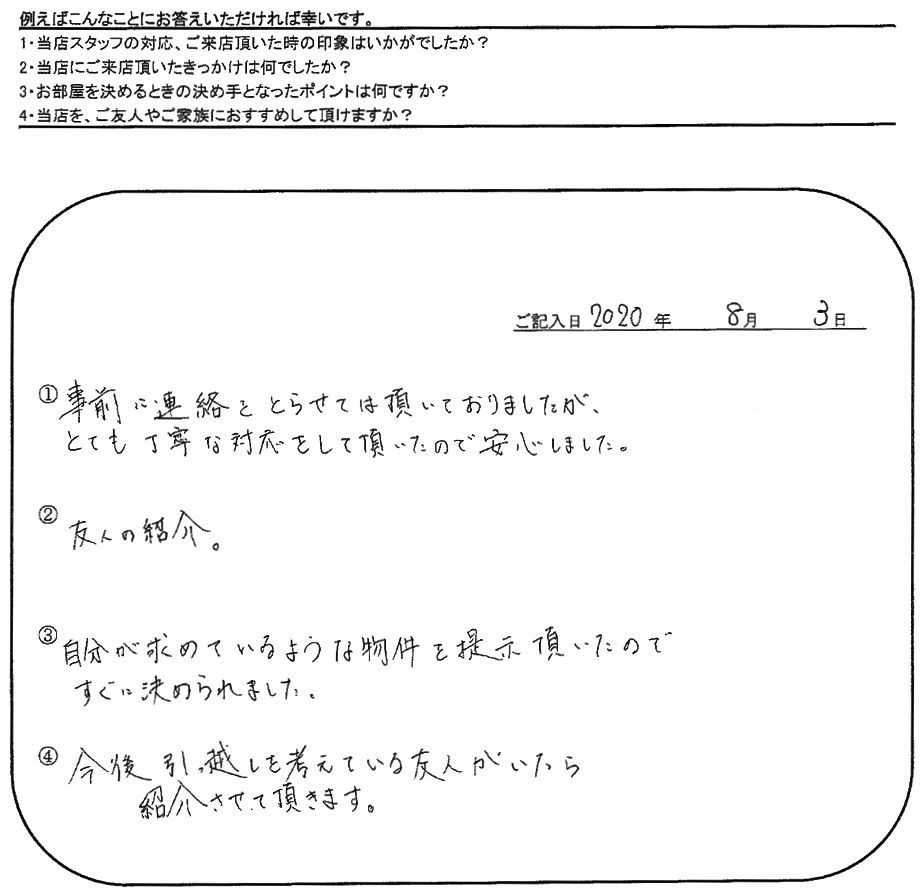 例えばこんなことにお答えいただければ幸いです。
1・当店スタッフの対応、ご来店頂いた時の印象はいかがでしたか？
2・当店にご来店頂いたきっかけは何でしたか？
3・お部屋を決めるときの決め手となったポイントは何ですか？
4・当店を、ご友人やご家族におすすめして頂けますか？
ご記入日 2020 年 8月 3日
① 事前に連絡をとらせては頂いておりましたが、
とても丁寧な対応をして頂いたので安心しました。
② 友人の紹介。
③ 自分が求めているような物件を提示頂いたので
すぐに決められました。
④ 今後引っ越しを考えている友人がいたら
紹介させて頂きます。